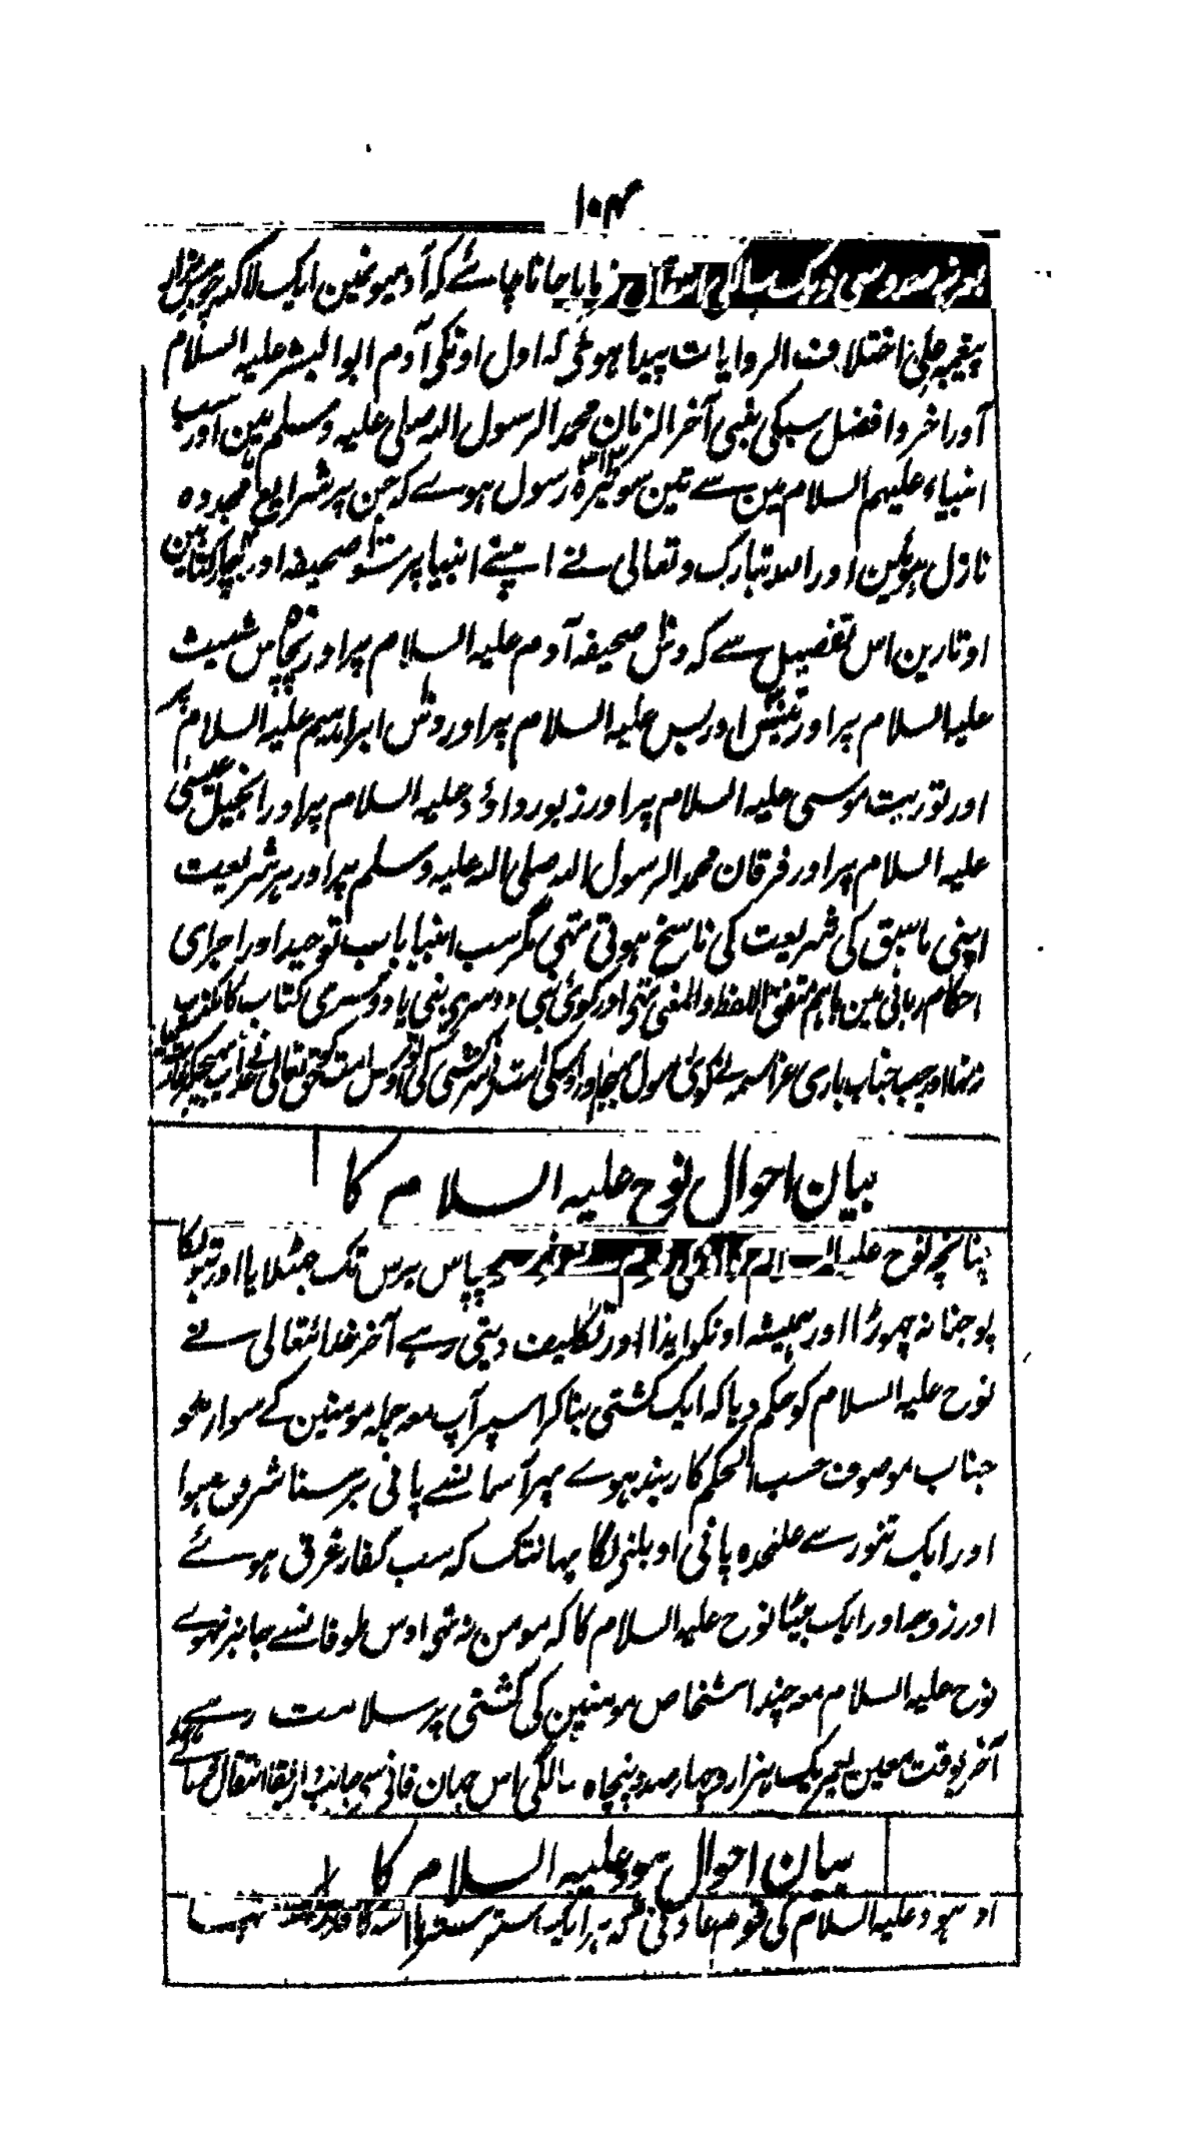 ۱۰۴
فرمایا جانا چاہئے کہ آدمیونمین ایک لاکہہ چوبیس ہزار
پیغمبر علیٰ اختلاف الروایات پیدا ہوئی کہ اول اونکی آدم ابوالبشر علیہ السلام
اور اخر و افضل سبکی نبی آخر الزمان محمد الرسول اللہ صلی علیہ وسلم ہین اور سب
انبیاء علیہم السلام مین سے تین سو تیرہ ۳۱۳ رسول ہوے کہ جن پر شرایع مجددہ
نازل ہوئین اور اللہ تبارک و تعالی نے اپنے انبیا پر سنتو صحیفہ اور چار کتابین
اوتارین اس تفصیل سے کہ دنل صحیفہ آدم علیہ السلام پر اور پچاس شیث
علیہ السلام پر اور تیس ادریس علیہ السلام پر اور دس ابراہیم علیہ السلام پر
اور توریت موسی علیہ السلام پر اور زبور داؤد علیہ السلام پر اور انجیل عیسیٰ
علیہ السلام پر اور فرقان محمد الرسول اللہ صلی اللہ علیہ وسلم پر اور ہر شریعت
اپنی ماسبق کی شریعت کی ناسخ ہوتی تہی مگر سب انبیا باب توحید اور اجرای
احکام ربانی مین باہم متفق اللفظ والمعنی تہی اور کوئی نبی دوسری نبی یا دوسری کتاب کا مکذب
نہ تہا اور جب جناب باری عز اسمہ نے کوئی رسول بہیجا اور اوسکی امت نے سرکشی کی تو اوس امت کو حق تعالی نے عذاب بہیجکر
بیان احوال نوح علیہ السلام کا
چنانچہ نوح علیہ السلام کا اونکی قوم نے نو سو پچاس برس تک جٹلایا اور بتونکا
پوجنا نہ چہوڑا اور ہمیشہ اونکو ایذا اور تکلیف دیتی رہے آخر خدائتعالی نے
نوح علیہ السلام کو حکم دیا کہ ایک کشتی بنا کر اسپر آپ معہ جملہ مومنین کے سوار ہو
جناب موصوف حسب الحکم کاربند ہوے پہر آسمانسے پانی برسنا شروع ہوا
اور ایک تنور سے علٰحدہ پانی اوبلنے لگا یہانتک کہ سب کفار غرق ہوئے
اور زوجہ اور ایک بیٹا نوح علیہ السلام کا کہ مومن نہ تہی اوس طوفانسے جانبر نہوے
نوح علیہ السلام معہ چند اشخاص مومنین کی کشتی پر سلامت رہے
آخر بوقت معین بعمر یک ہزار و چہار صد و پنجاہ سالگی اس جہان فانی سے جانب دار البقا انتقال
بیان احوال ہود علیہ السلام کا
اور ہود علیہ السلام کی قوم عاد تہی کہ ہر ایک استر ستر گز کا قد